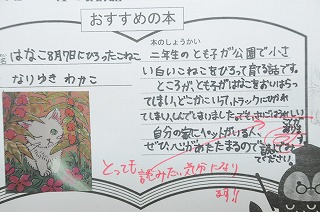 おすすめの本
はなこ8月7日にひろったこねこ
なりゆき わかこ
本のしょうかい
二年生のとも子が公園で小さ
い白いこねこをひろって育てる話です。
ところが、とも子がはなこをおいはらっ
てしまい、どこかにいって、トラックにひかれ
てしまい、しんでしまいました。
自分の家にペットがいる人、
ぜひ心があたたまるので
ください
とっても
読みたい気分になり
ます!!